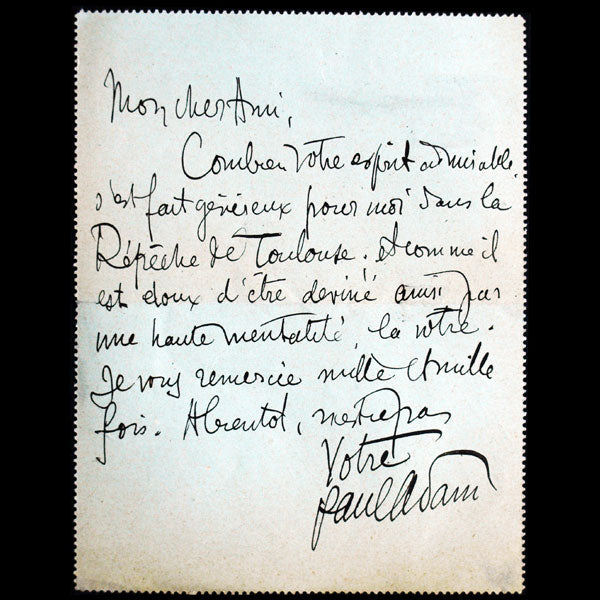 Mon cher Ami,
Combien Votre esprit admirable
s'est fait généreux pour moi dans la
Dépêche de Toulouse. et comme il
est doux d'être deviné ainsi par
une haute mentalité, la vôtre.
Je vous remercie mille et mille
fois. A bientot, n'est ce pas
Votre
Paul Adam